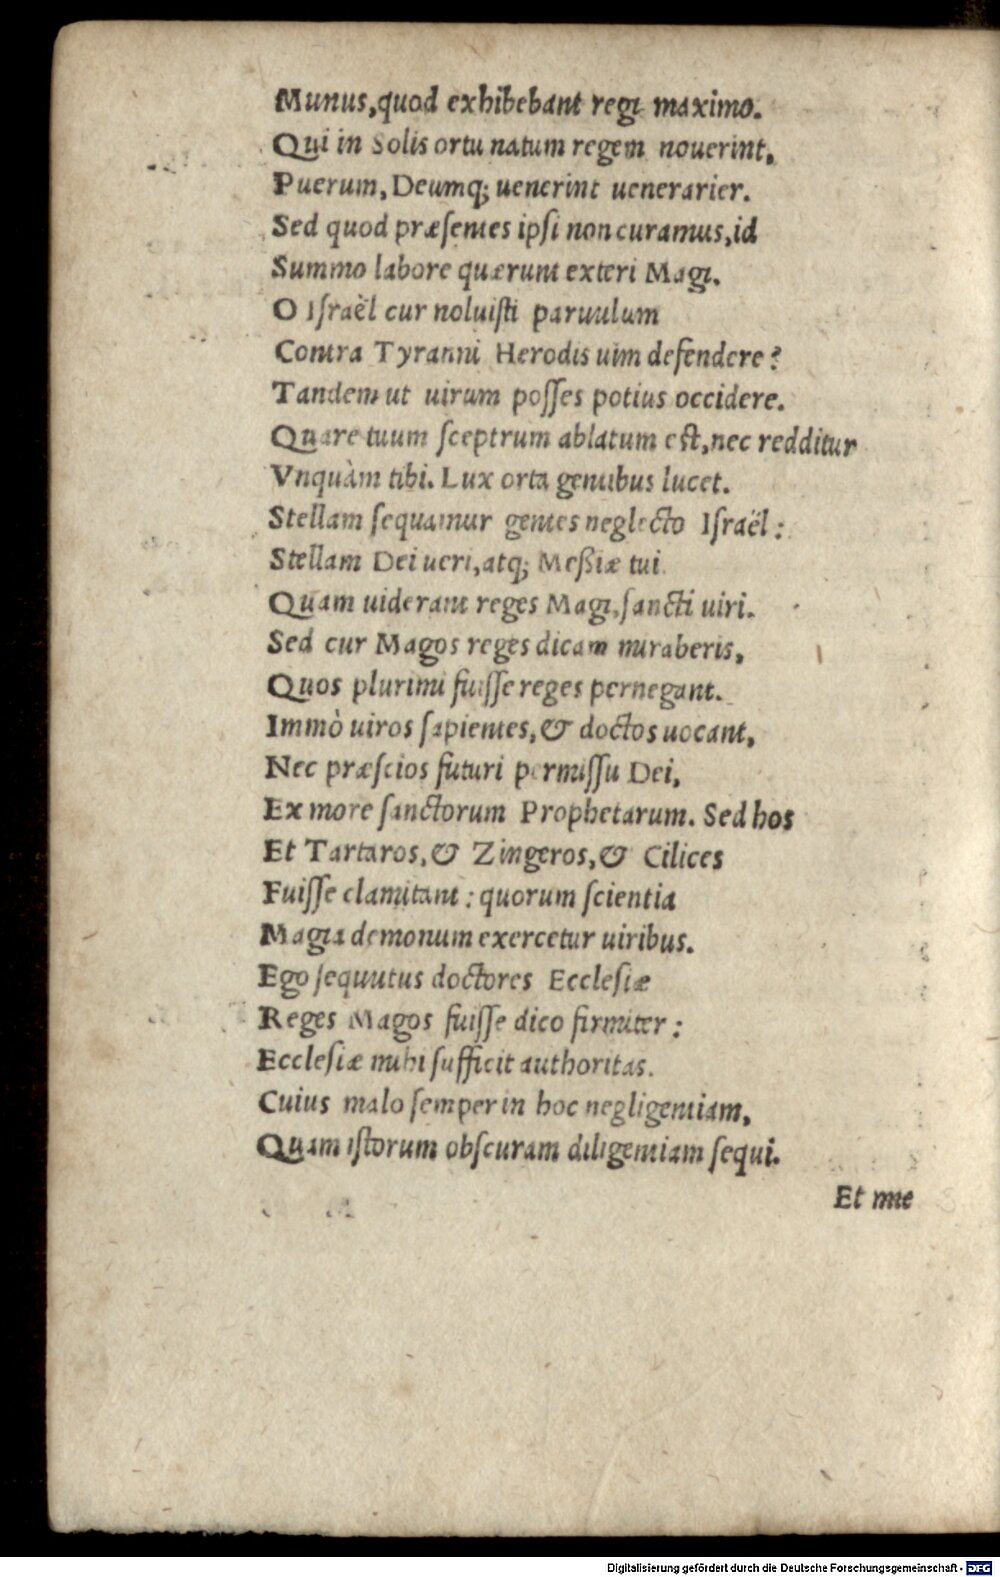 Munus,quod exhibebant regi maximo.
Qui in Solis ortu natum regem nouerint,
Puerum, Deumq; uenerint uenerarier.
Sed quod præsentes ipsi non curamus,id
Summo labore quærunt exteri Magi.
O Israël cur noluisti paruulum
Contra Tyranni Herodis uim defendere?
Tandem ut uirum posses potius occidere.
Quare tuum sceptrum ablatum est,nec redditur
Vnquàm tibi. Lux orta gentibus lucet.
Stellam sequamur gentes neglecto Israël:
Stellam Dei ueri,atq; Meßiæ tui
Quam uiderant reges Magi,sancti uiri.
Sed cur Magos reges dicam miraberis,
Quos plurimi fuisse reges pernegant.
Immò uiros sapientes,& doctos uocant,
Nec præscios futuri permissu Dei,
Ex more sanctorum Prophetarum. Sed hos
Et Tartaros,& Zingeros,& Cilices
Fuisse clamitant: quorum scientia
Magia demonum exercetur uiribus.
Ego sequutus doctores Ecclesiæ
Reges Magos fuisse dico firmiter:
Ecclesiæ mihi sufficit authoritas.
Cuius malo semper in hoc negligentiam,
Quam istorum obscuram diligentiam sequi.
Et mie
Digitalisierung gefördert durch die Deutsche Forschungsgemeinschaft - DFG